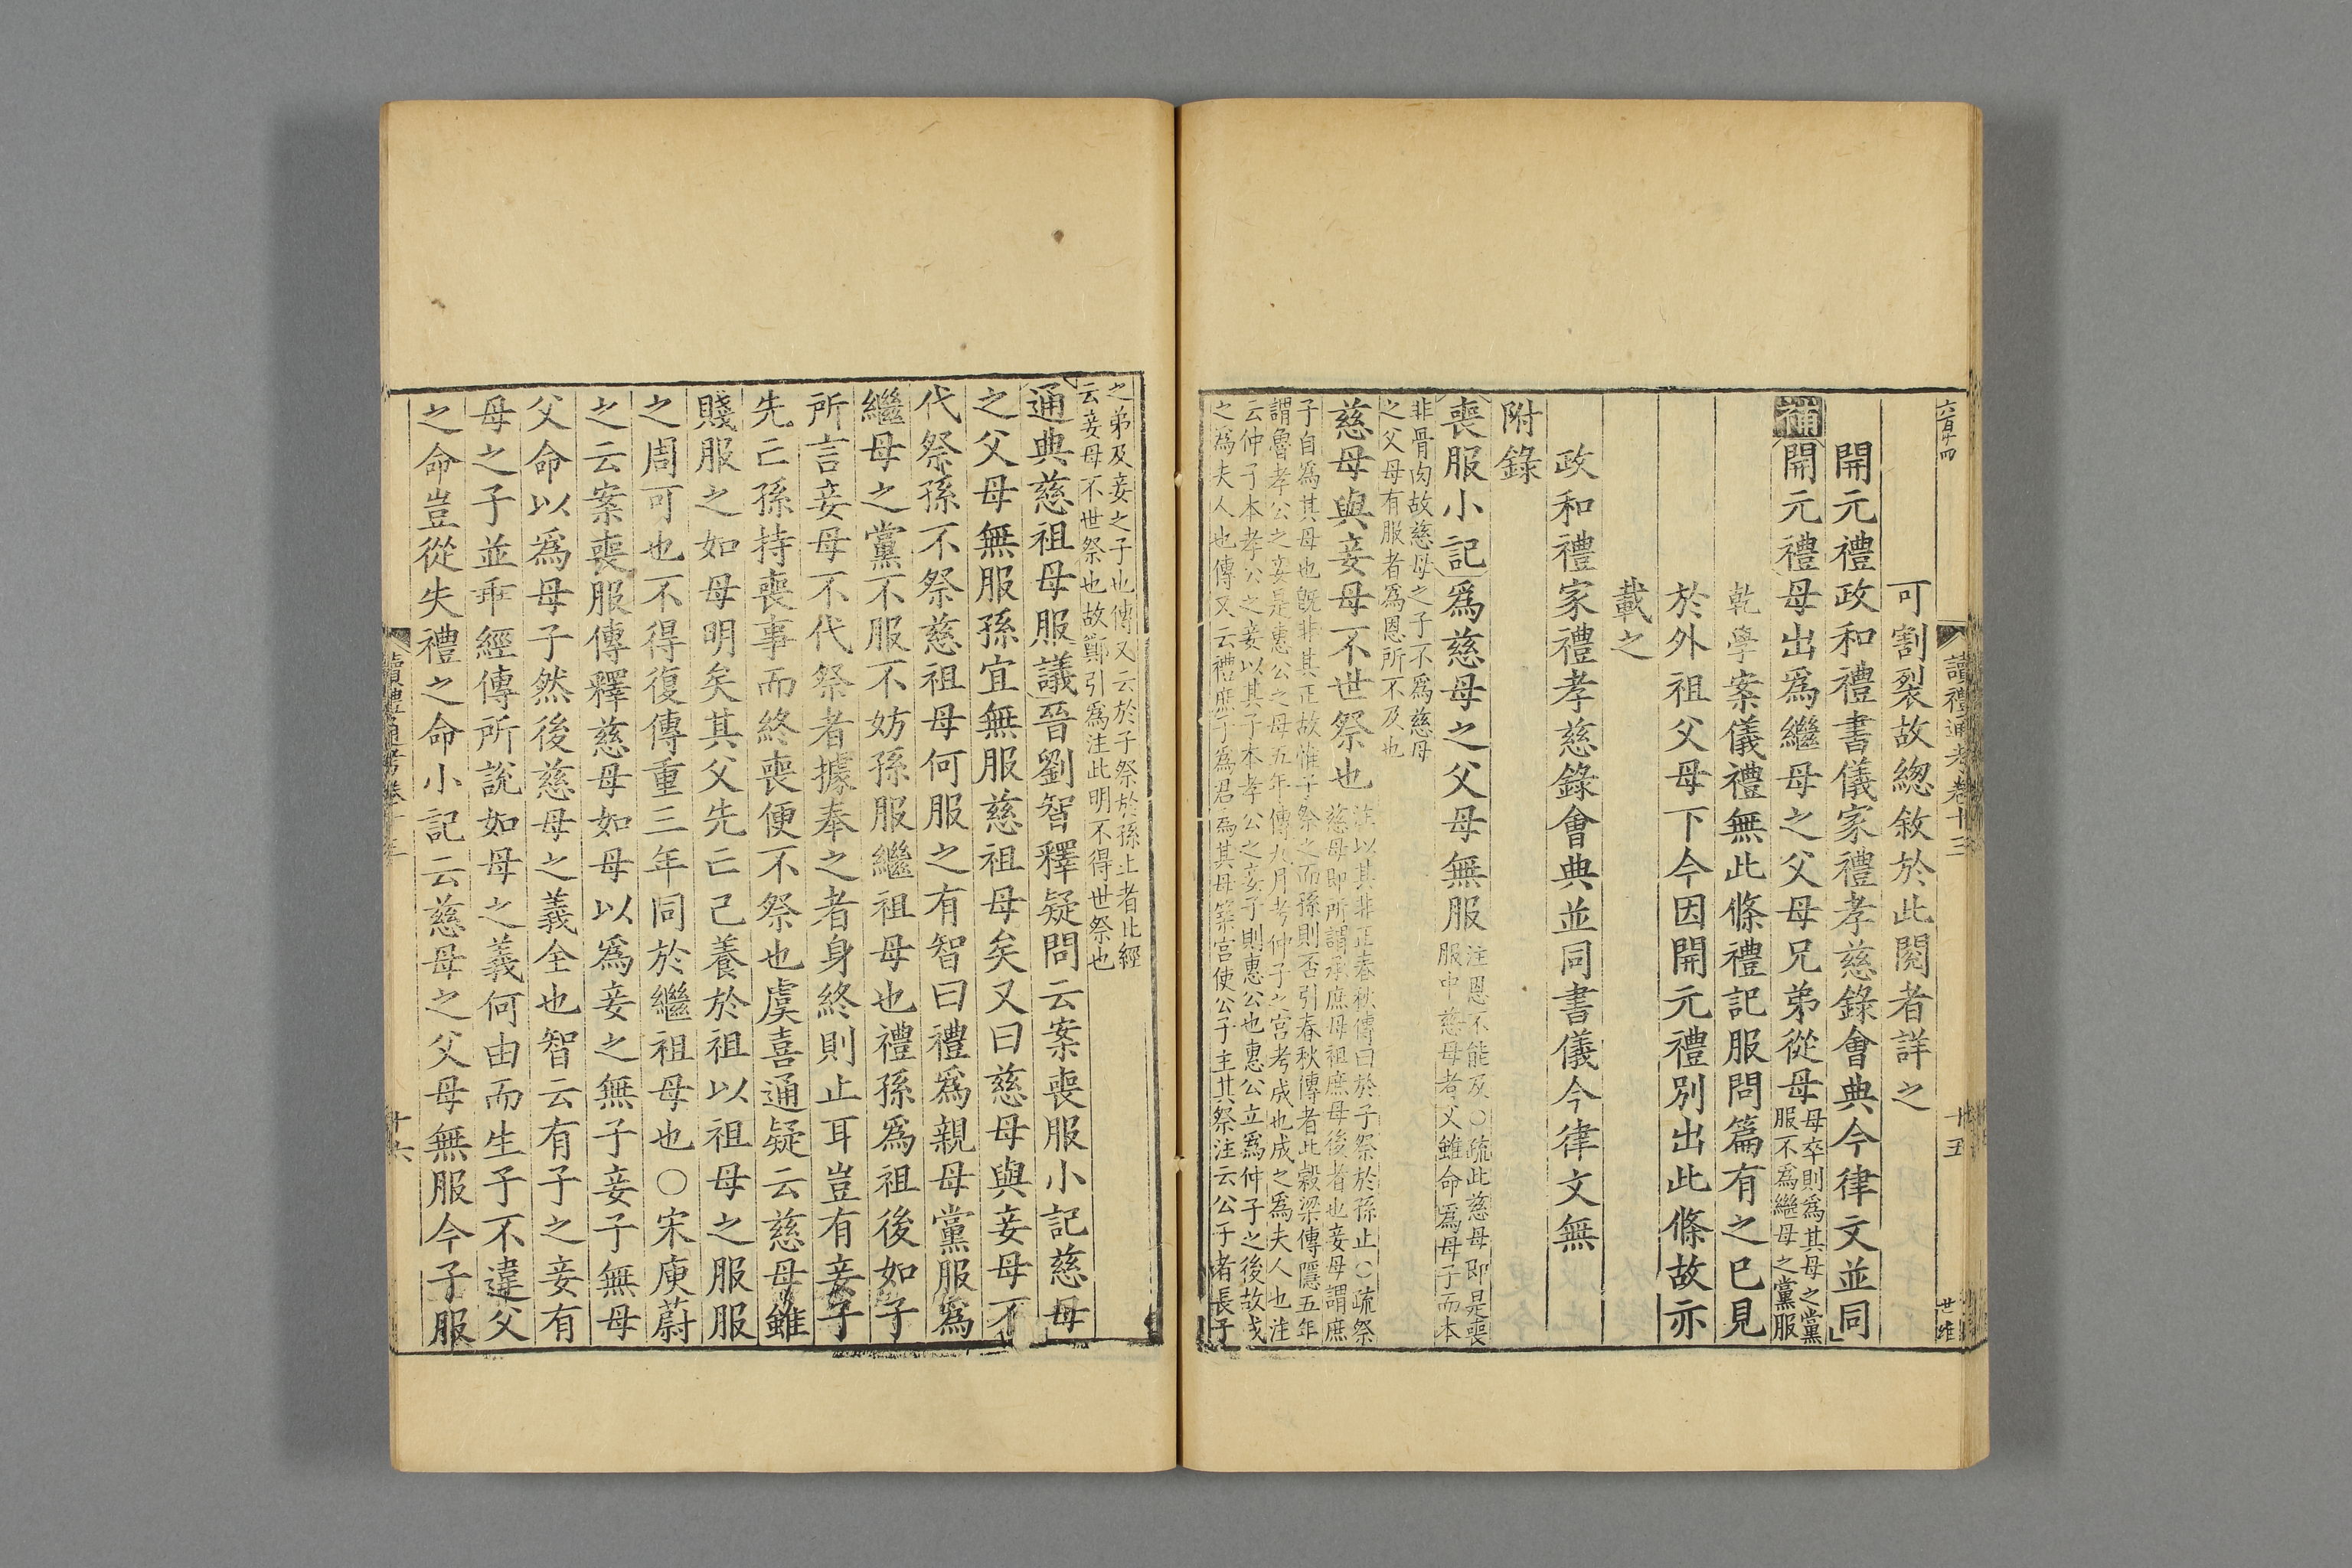 六百十四
讀禮通考卷十三
十五
世維
可割裂故緫敘於此閱者詳之
開元禮政和禮書儀家禮孝慈錄會典今律文並同
補開元禮母出爲繼母之父母兄弟從母母卒則爲其母之黨服不爲繼母之黨服
乾學案儀禮無此條禮記服問篇有之已見
於外祖父母下今因開元禮別出此條故亦
載之
政和禮家禮孝慈錄會典並同書儀今律文無
附錄
喪服小記爲慈母之父母無服注恩不能及○疏此慈母即是喪服中慈母者父雖命爲母子而本
非骨肉故慈母之子不爲慈母之父母有服者爲恩所不及也
慈母與妾母不世祭也注以其非正春秋傳曰於子祭於孫止○疏祭慈母即所謂承庶母祖庶母後者也妾母謂庶
子自爲其母也旣非其正故惟子祭之而孫則否引春秋傳者此穀梁傳隱五年
謂魯孝公之妾是惠公之母五年傳九月考仲子之宮考成也成之爲夫人也注
云仲子本孝公之妾以其子本孝公之妾子則惠公也惠公立爲仲子之後故成
之爲夫人也傳又云禮庶子爲君爲其母築宮使公子主其祭注云公子者長子
之弟及妾之子也傳又云於子祭於孫止者此經
云妾母不世祭也故鄭引爲注此明不得世祭也
通典慈祖母服議晉劉智釋疑問云案喪服小記慈母
之父母無服孫宜無服慈祖母矣又曰慈母與妾母不
代祭孫不祭慈祖母何服之有智曰禮爲親母黨服爲
繼母之黨不服不妨孫服繼祖母也禮孫爲祖後如子
所言妾母不代祭者據奉之者身終則止耳豈有妾子
先亡孫持喪事而終喪便不祭也虞喜通疑云慈母雖
賤服之如母明矣其父先亡己養於祖以祖母之服服
之周可也不得復傳重三年同於繼祖母也○宋庾蔚
之云案喪服傳釋慈母如母以爲妾之無子妾子無母
父命以爲母子然後慈母之義全也智云有子之妾有
母之子並乖經傳所說如母之義何由而生子不違父
之命豈從失禮之命小記云慈母之父母無服今子服
讀禮通考卷十三
十六